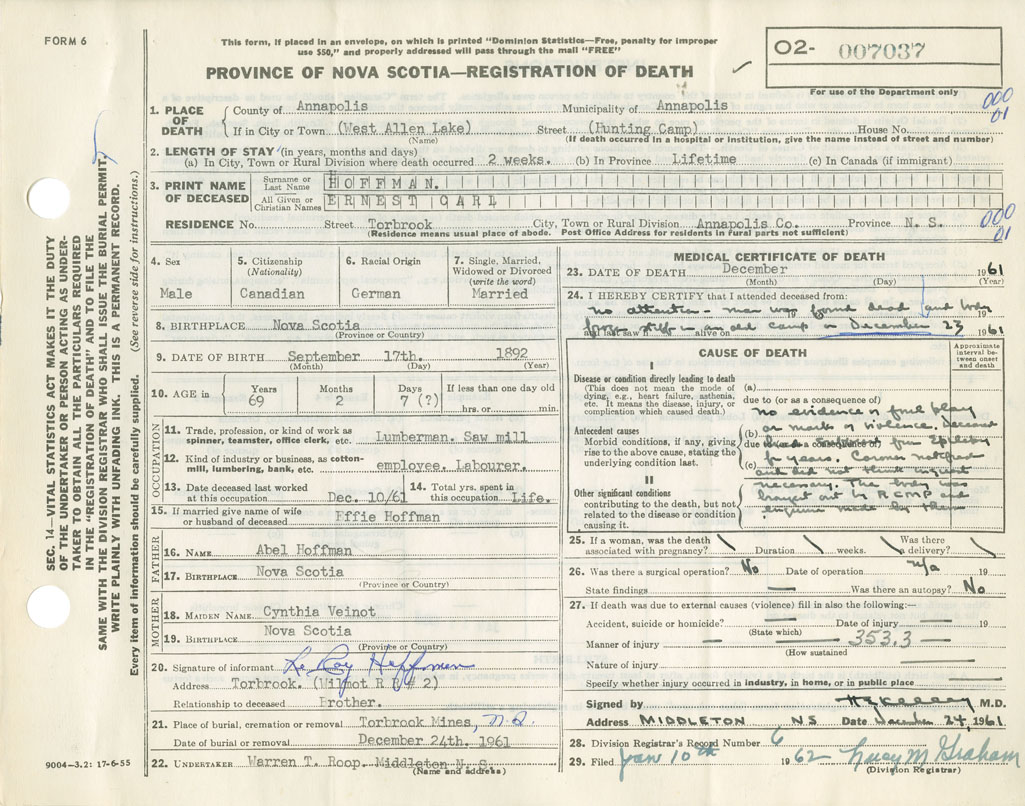 FORM 6
This form, if placed in an envelope, on which is printed "Dominion Statistics—Free, penalty for improper
use $50," and properly addressed will pass through the mail "FREE"
PROVINCE OF NOVA SCOTIA—REGISTRATION OF DEATH
02- 007037
For use of the Department only
000
01
1. PLACE OF DEATH
County of Annapolis Municipality of Annapolis
If in City or Town (West Allen Lake) Street (Hunting Camp) House No.
(Name) (If death occurred in a hospital or institution, give the name instead of street and number)
2. LENGTH OF STAY (in years, months and days)
(a) In City, Town or Rural Division where death occurred 2 weeks. (b) In Province Lifetime (c) In Canada (if immigrant)
3. PRINT NAME OF DECEASED
Surname or Last Name HOFFMAN.
All Given or Christian Names ERNEST CARL
RESIDENCE No. Street Torbrook City, Town or Rural Division Annapolis Co. Province N. S.
(Residence means usual place of abode. Post Office Address for residents in rural parts not sufficient)
000
01
4. Sex
Male
5. Citizenship
(Nationality)
Canadian
6. Racial Origin
German
7. Single, Married,
Widowed or Divorced
(write the word)
Married
8. BIRTHPLACE Nova Scotia
(Province or Country)
9. DATE OF BIRTH September 17th. 1892
(Month) (Day) (Year)
10. AGE in
Years 69
Months 2
Days 7 (?)
If less than one day old
hrs. or min.
OCCUPATION
11. Trade, profession, or kind of work as
spinner, teamster, office clerk, etc. Lumberman. Saw mill
12. Kind of industry or business, as cotton-
mill, lumbering, bank, etc. employee. Labourer.
13. Date deceased last worked
at this occupation Dec. 10/61
14. Total yrs. spent in
this occupation Life.
15. If married give name of wife
or husband of deceased Effie Hoffman
FATHER
16. NAME Abel Hoffman
17. BIRTHPLACE Nova Scotia
(Province or Country)
MOTHER
18. MAIDEN NAME Cynthia Veinot
19. BIRTHPLACE Nova Scotia
(Province or Country)
20. Signature of informant Le Roy Hoffman
Address Torbrook. (Wilmot R R # 2)
Relationship to deceased Brother.
21. Place of burial, cremation or removal Torbrook Mines, N.S.
Date of burial or removal December 24th. 1961
22. UNDERTAKER Warren T. Roop. Middleton N. S.
(Name and address)
MEDICAL CERTIFICATE OF DEATH
23. DATE OF DEATH December 1961
(Month) (Day) (Year)
24. I HEREBY CERTIFY that I attended deceased from:
no attention - man was found dead and body 19
froze stiff in an old camp on December 23 1961
and last saw alive on
CAUSE OF DEATH
Approximate interval between onset and death
I
Disease or condition directly leading to death
(This does not mean the mode of
dying, e.g., heart failure, asthenia,
etc. It means the disease, injury, or
complication which caused death.)
(a)
due to (or as a consequence of)
no evidence of foul play
(b) or marks of violence. Deceased
due to (or as a consequence of) from Epilepsy
(c) for years. Coroner notified
and did not think inquest
necessary. The body was
brought out by RCMP and
enquiries made by them
Antecedent causes
Morbid conditions, if any, giving
rise to the above cause, stating the
underlying condition last.
II
Other significant conditions
contributing to the death, but not
related to the disease or condition
causing it.
25. If a woman, was the death
associated with pregnancy? Duration weeks. Was there
a delivery?
26. Was there a surgical operation? No Date of operation n/a 19
State findings Was there an autopsy? No
27. If death was due to external causes (violence) fill in also the following:—
Accident, suicide or homicide? — Date of injury — 19
(State which)
Manner of injury — 353.3 —
(How sustained)
Nature of injury
Specify whether injury occurred in industry, in home, or in public place
Signed by M.D.
Address MIDDLETON NS Date December 24, 1961.
28. Division Registrar's Record Number 6
29. Filed Jan 10th 1962 Nancy M Graham
(Division Registrar)
SEC. 14—VITAL STATISTICS ACT MAKES IT THE DUTY
OF THE UNDERTAKER OR PERSON ACTING AS UNDER-
TAKER TO OBTAIN ALL THE PARTICULARS REQUIRED
IN THE "REGISTRATION OF DEATH" AND TO FILE THE
SAME WITH THE DIVISION REGISTRAR WHO SHALL ISSUE THE BURIAL PERMIT.
WRITE PLAINLY WITH UNFADING INK. THIS IS A PERMANENT RECORD.
Every item of information should be carefully supplied. (See reverse side for instructions.)
9004—3.2: 17-6-55